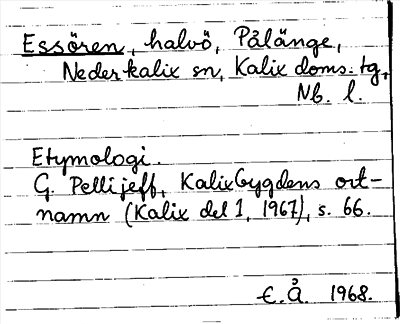 Essören, halvö, Pålänge,
Nederkalix sn, Kalix doms. tg,
Nb. l.
Etymologi.
G. Pellijeff, Kalixbygdens ort-
namn (Kalix del 1, 1967), s. 66.
E.Å 1968.